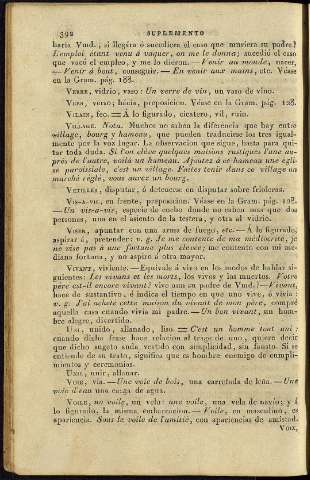 392 SUPLEMENTO
haria Vmd., si llegára ó sucediera el caso que muriera su padre?
L'emploi étant venu à vaquer, on me le donna; sucedió el caso
que vacó el empleo, y me lo dieron. — Venir au monde, nacer,
— Venir à bout, conseguir. — En venir aux mains, etc. Véase
en la Gram. pág. 188.
VERRE, vidrio, vaso: Un verre de vin, un vaso de vino.
VERS, verso; hácia, preposicion. Véase en la Gram. pág. 128.
VILAIN, feo. = Á lo figurado, cicatero, vil, ruin.
VILLAGE. Nota. Muchos no saben la diferencia que hay entre
village, bourg y hameau, que pueden traducirse los tres igual-
mente por la voz lugar. La observacion que sigue, basta para qui-
tar toda duda. Si l'on élève quelques maisons rustiques l'une au-
près de l'autre, voilà un hameau. Ajoutez à ce hameau une egli-
se paroissiale, c'est un village. Faites tenir dans ce village un
marché réglé, vous aurez un bourg.
VETILLER, disputar, ó detenerse en disputar sobre frioleras.
VIS-A-VIS, en frente, preposicion. Véase en la Gram. pág. 128.
— Un vis-a-vis, especie de coche donde no caben mas que dos
personas, una en el asiento de la testera, y otra al vidrio.
VISER, apuntar con una arma de fuego, etc. — Á lo figurado,
aspirar á, pretender: v. g. Je me contente de ma médiocrité, je
ne vise pas à une fortune plus élevée; me contento con mi me-
diana fortuna, y no aspiro á otra mayor.
VIVANT, viviente. — Equivale á vivo en los modos de hablar si-
guientes: Les vivants et les morts, los vivos y los muertos. Votre
père est-il encore vivant? vive aun su padre de Vmd.? — Vivant,
hace de sustantivo, é indica el tiempo en que uno vive, ó vivia:
v. g. J'ai acheté cette maison du vivant de mon père, compré
aquella casa cuando vivia mi padre. — Un bon vivant, un hom-
bre alegre, divertido.
UNI, unido, allanado, liso = C'est un homme tout uni;
cuando dicho frase hace relacion al trage de uno, quiere decir
que dicho sugeto anda vestido con simplicidad, sin fausto. Si se
entiende de su trato, significa que es hombre enemigo de cumpli-
mientos y ceremonias.
UNIR, unir, allanar.
VOIE, via. — Une voie de bois, una carretada de leña. — Une
voie d'eau una carga de agua.
VOILE, un voile, un velo: une voile, una vela de navío; y á
lo figurado, la misma embarcacion. — Voile, en masculino, es
apariencia. Sous le voile de l'amitié, con apariencias de amistad.
VOIX,